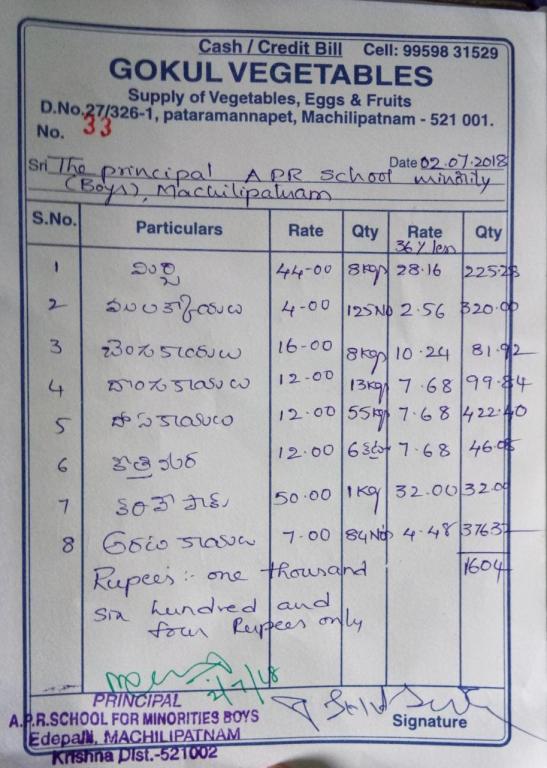 Cash / Credit Bill Cell: 99598 31529
GOKUL VEGETABLES
Supply of Vegetables, Eggs & Fruits
D.No.27/326-1, pataramannapet, Machilipatnam - 521 001.
No. 33
Date 02.07.2018
Sri The principal APR School minority
(Boys), Machilipatnam
S.No. Particulars Rate Qty Rate Qty
36% less
1 మిర్చి 44-00 8kgs 28.16 225.28
2 4-00 125No 2.56 320.00
3 16-00 8kgs 10.24 81.92
4 12.00 13kgs 7.68 99.84
5 దోసకాయలు 12.00 55kgs 7.68 422.40
6 కొత్తిమీర 12.00 6కట్ట 7.68 46.08
7 50.00 1kg 32.00 32.00
8 అరటి కాయలు 7.00 84No 4.48 37632
Rupees :- one thousand 1604
six hundred and
four Rupees only
2/7/18
PRINCIPAL
A.P.R.SCHOOL FOR MINORITIES BOYS
Edepalli, MACHILIPATNAM
Krishna Dist.-521002
Signature